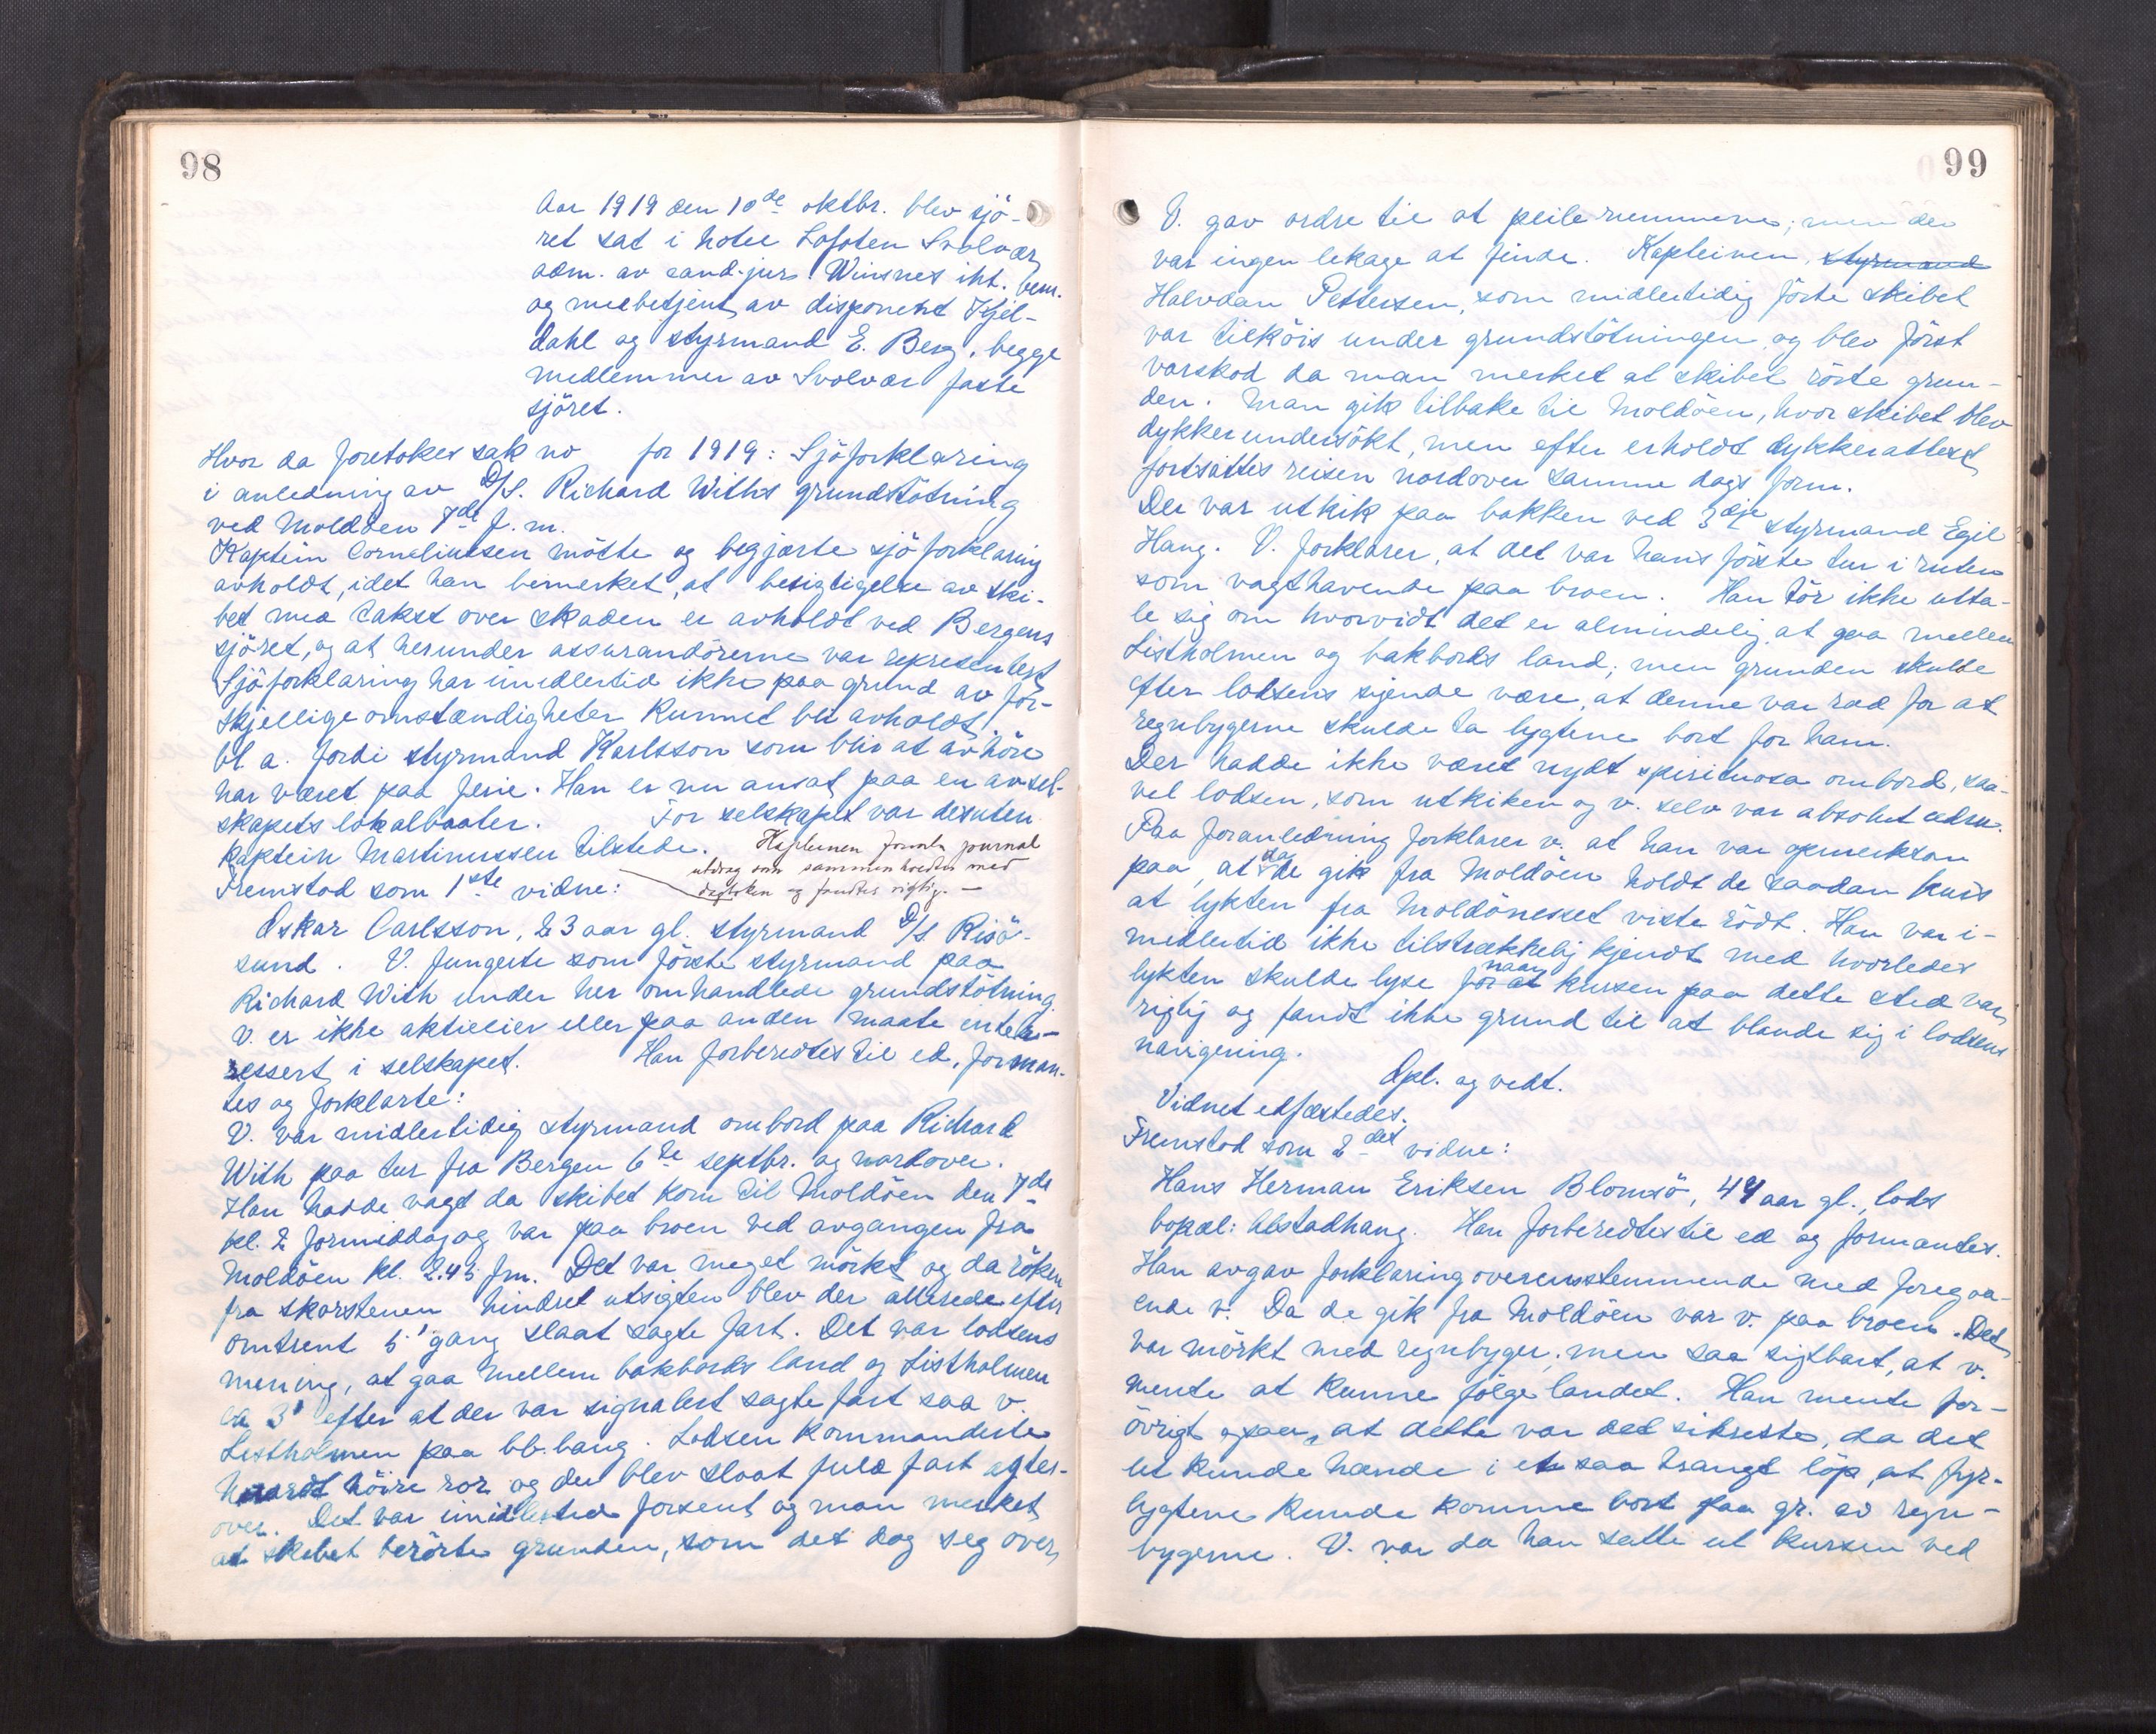 98
Aar 1919 den 10de oktbr. blev sjö-
ret sat i hotel Lofoten Svolvær,
adm. av cand. jur. Winsnes iht. bem.
og medbetjent av disponent Kjel-
dahl og styrmand E. Berg, begge
medlemmer av Svolvær faste
sjöret.
Hvor da foretokes sak no for 1919: Sjöforklaring
i anledning av D/S. Richard Withs grundstötning
ved Moldöen 7de f. m.
Kaptein Corneliussen mötte og begjærte sjöforklaring
avholdt, idet han bemerket, at besigtigelse av ski-
bet med takst over skaden er avholdt ved Bergens
sjöret, og at herunder assurandörerne var representert.
Sjöforklaring har imidlertid ikke paa grund av for-
skjellige omstændigheter kunnet bli avholdt,
bl. a. fordi styrmand Karlsson som blir at avhöre
har været paa ferie. Han er nu ansat paa en av sel-
skapets lokalbaater. For selskapet var desuten
kaptein Martinussen tilstede. Kapteinen fremla journal
utdrag som sammenholdtes med
dagboken og fandtes rigtig. —
Fremstod som 1ste vidne:
Oskar Carlsson, 23 aar gl. styrmand D/S Risö-
sund. V. fungerte som förste styrmand paa
Richard With under her omhandlede grundstötning.
V. er ikke aktieeier eller paa anden maate inte-
ressert i selskapet. Han forberedtes til ed, forman-
tes og forklarte:
V. var midlertidig styrmand ombord paa Richard
With paa tur fra Bergen 6te septbr. og nordover.
Han hadde vagt da skibet kom til Moldöen den 7de
kl. 2 formiddag og var paa broen ved avgangen fra
Moldöen kl. 2.45 fm. Det var meget mörkt og da röken
fra skorstenen hindret utsigten blev der allerede efter
omtrent 5' gang slaat sagte fart. Det var lodsens
mening, at gaa mellem bakbords land og Listholmen
ca 3' efter at der var signalert sagte fart saa v.
Listholmen paa bb. baug. Lodsen kommanderte
haardt höire ror og der blev slaat fuld fart agter-
over. Det var imidlertid forsent og man merket
at skibet berörte grunden, som det dog seg over,
99
V. gav ordre til at peile rummene; men der
var ingen lekage at finde. Kapteinen, styrmand
Halvdan Pettersen, som midlertidig förte skibet
var tilköis under grundstötningen og blev först
varskod da man merket at skibet rörte grun-
den. Man gik tilbake til Moldöen, hvor skibet blev
dykkerundersökt, men efter erholdt dykkerattest
fortsattes reisen nordover samme dags form.
Der var utkik paa bakken ved 3dje styrmand Egil
Haug. V. forklarer, at det var hans förste tur i ruten
som vagthavende paa broen. Han tör ikke utta-
le sig om hvorvidt det er almindelig at gaa mellem
Listholmen og bakbords land; men grunden skulde
efter lodsens sigende være, at denne var ræd for at
regnbygerne skulde ta lygtene bort for ham.
Der hadde ikke været nydt spirituosa ombord, saa-
vel lodsen, som utkiken og v. selv var absolut ædru.
Paa foranledning forklarer v. at han var opmerksom
paa, at da de gik fra Moldöen holdt de saadan kurs
at lykten fra Moldönesset viste rödt. Han var i-
medlertid ikke tilstrækkelig kjendt med hvorledes
lykten skulde lyse for at naar kursen paa dette sted var
rigtig og fandt ikke grund til at blande sig i lodsens
navigering.
Opl. og vedt.
Vidnet edfæstedes.
Fremstod som 2det vidne:
Hans Herman Eriksen Blomsö, 44 aar gl., lods
bopæl: Alstadhaug. Han forberedtes til ed og formantes.
Han avgav forklaring overensstemmende med foregaa-
ende v. Da de gik fra Moldöen var v. paa broen. Det
var mörkt med regnbyger; men saa sigtbart, at v.
mente at kunne fölge landet. Han mente for-
övrigt ogsaa, at dette var det sikreste, da det
let kunde hænde i et saa trangt löp, at fyr-
lygtene kunde komme bort paa gr. av regn-
bygerne. V. var da han satte ut kursen ved